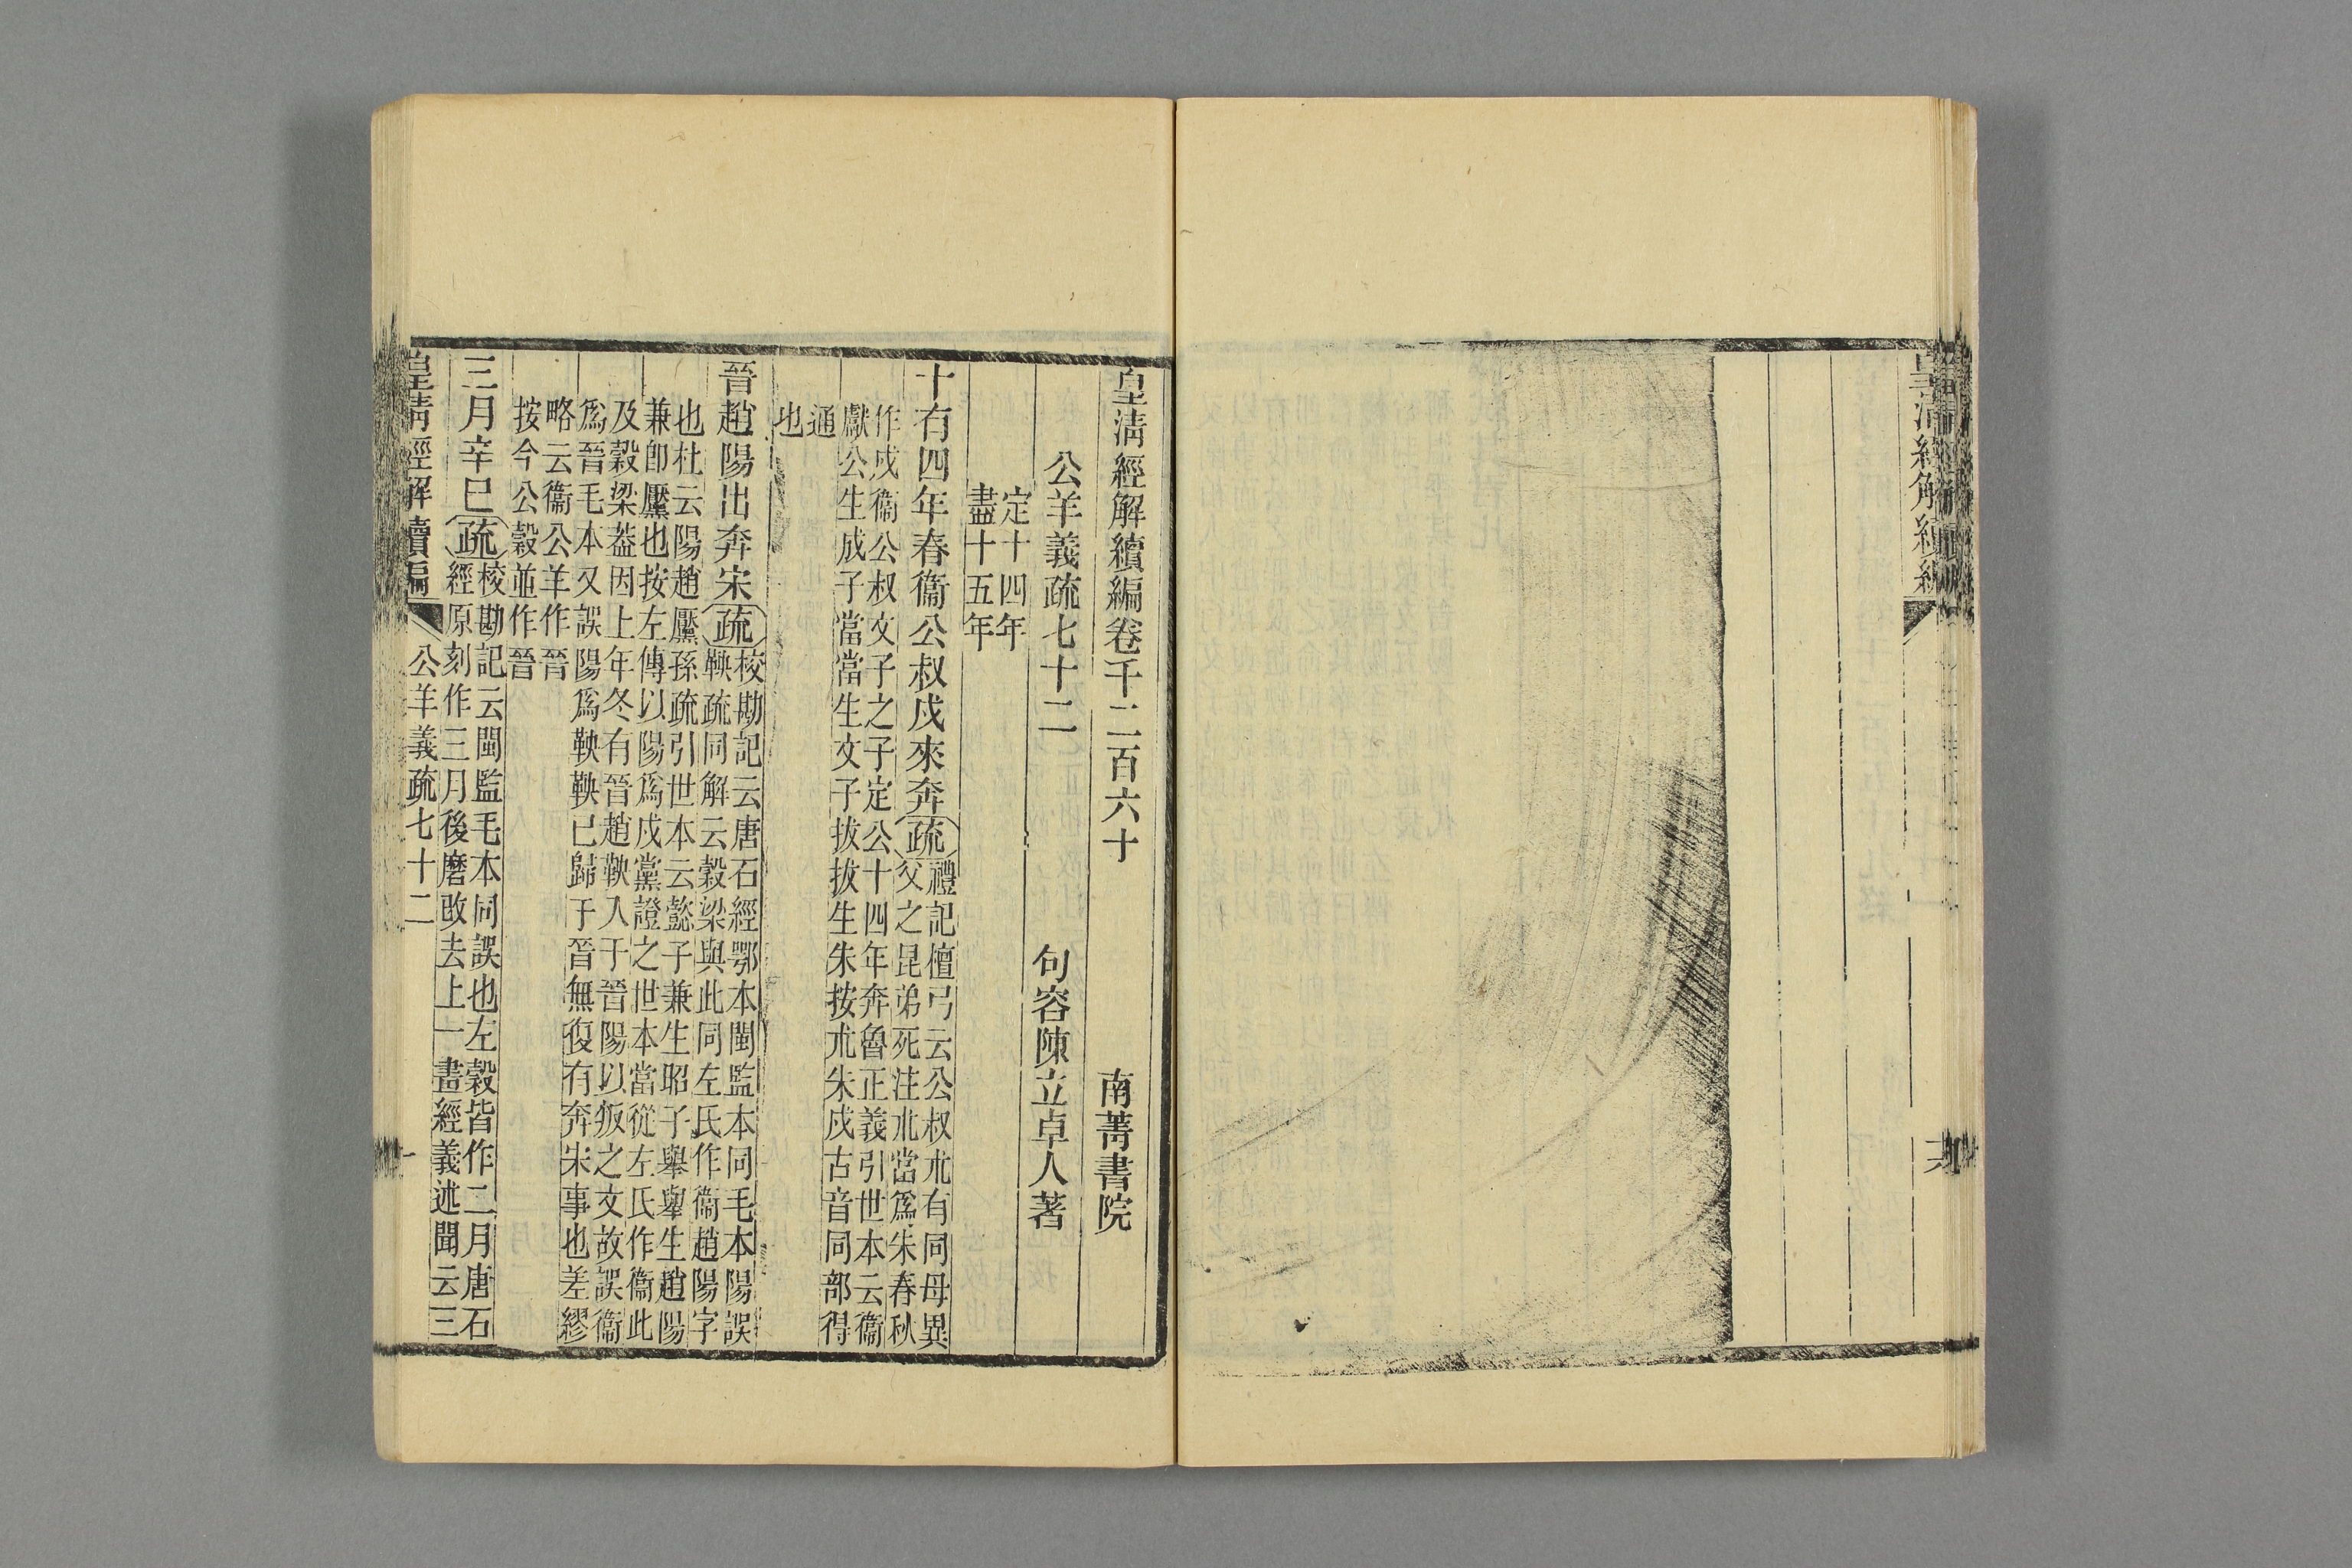 皇清經解續編
六
皇清經解續編卷千二百六十
南菁書院
公羊義疏七十二
句容陳立卓人著
定十四年
盡十五年
十有四年春衞公叔戍來奔疏
禮記檀弓云公叔朮有同母異
父之昆弟死注朮當爲朱春秋
作戍衞公叔文子之子定公十四年奔魯正義引世本云衞
獻公生成子當當生文子拔拔生朱按朮朱戍古音同部得
通
也
晉趙陽出奔宋疏
校勘記云唐石經鄂本閩監本同毛本陽誤
鞅疏同解云穀梁與此同左氏作衞趙陽字
也杜云陽趙黶孫疏引世本云懿子兼生昭子舉舉生趙陽
兼卽黶也按左傳以陽爲戍黨證之世本當從左氏作衞此
及穀梁葢因上年冬有晉趙鞅入于晉陽以叛之文故誤衞
爲晉毛本又誤陽爲鞅鞅已歸于晉無復有奔宋事也差繆
略云衞公羊作晉
按今公穀並作晉
三月辛巳疏
校勘記云閩監毛本同誤也左穀皆作二月唐石
經原刻作三月後磨改去上一畫經義述聞云三
皇清經解續編
公羊義疏七十二
一